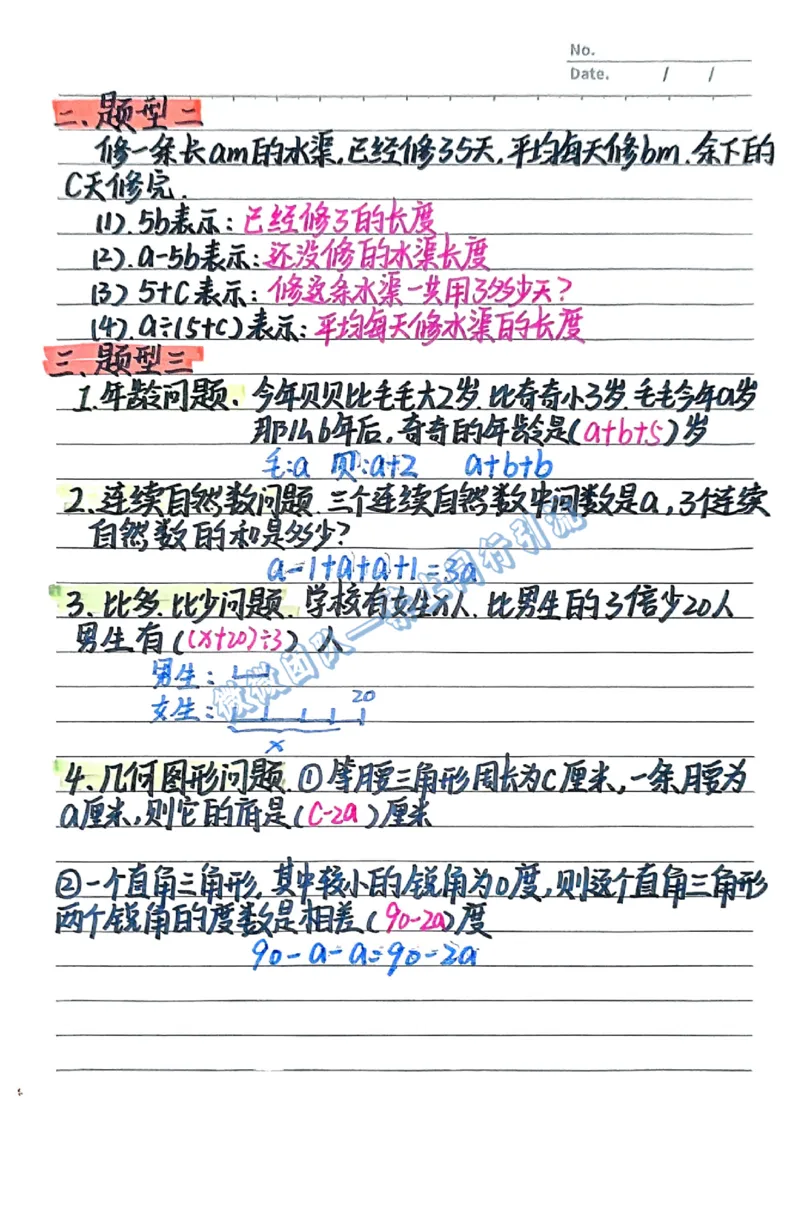 No.
Date. / /
二、题型二
修一条长am的水渠,已经修了5天,平均每天修bm.余下的
C天修完.
(1).5b表示:已经修了的长度
(2).a-5b表示:还没修的水渠长度
(3) 5+C表示:修这条水渠一共用了多少天?
(4).a÷(5+c)表示:平均每天修水渠的长度
三、题型三
1.年龄问题、今年贝贝比毛毛大2岁.比奇奇小3岁.毛毛今年a岁
那么b年后,奇奇的年龄是(a+b+5)岁
毛:a 贝:a+2 a+b+b
2.连续自然数问题.三个连续自然数中间数是a,3个连续
自然数的和是多少?
a-1+a+a+1=3a
3、比多比少问题.学校有女生x人.比男生的3倍少20人
男生有((x+20)÷3)人
男生:
女生: 20
x
4、几何图形问题.①等腰三角形周长为C厘米,一条腰为
a厘米,则它的底是(C-2a)厘米
②一个直角三角形,其中较小的锐角为a度,则这个直角三角形
两个锐角的度数是相差(90-2a)度
90-a-a=90-2a